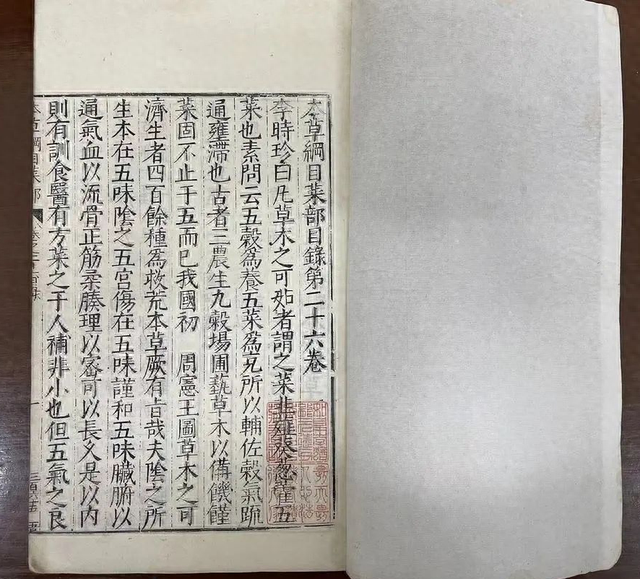 本草綱目菜部目錄第二十六卷
李時珍曰凡草木之可茹者謂之菜韭薤葵葱藿五
菜也素問云五穀爲養五菜爲充所以輔佐穀氣疏
通壅滯也古者三農生九穀場圃蓺草木以備饑饉
菜固不止于五而已我國初 周憲王圖草木之可
濟生者四百餘種爲救荒本草厥有旨哉夫陰之所
生本在五味陰之五宮傷在五味謹和五味臟腑以
通氣血以流骨正筋柔腠理以密可以長久是以內
則有訓食醫有方菜之于人補非小也但五氣之良
本草綱目菜部